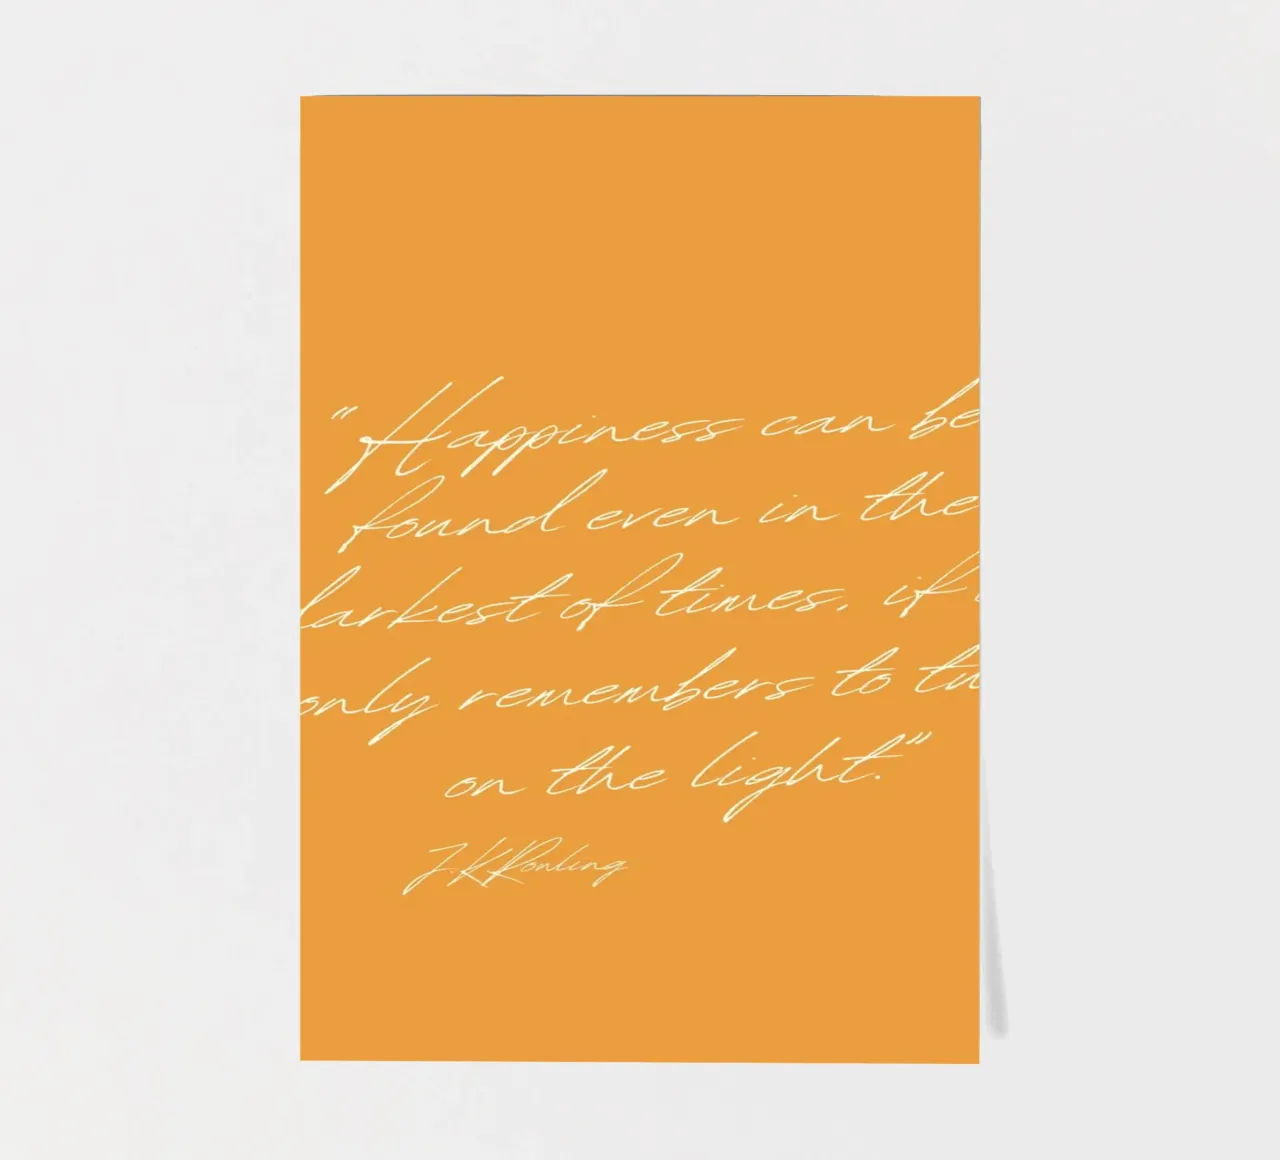 “Happiness can be
found even in the
darkest of times, if
only remembers to tu
on the light.”
J.K Rowling